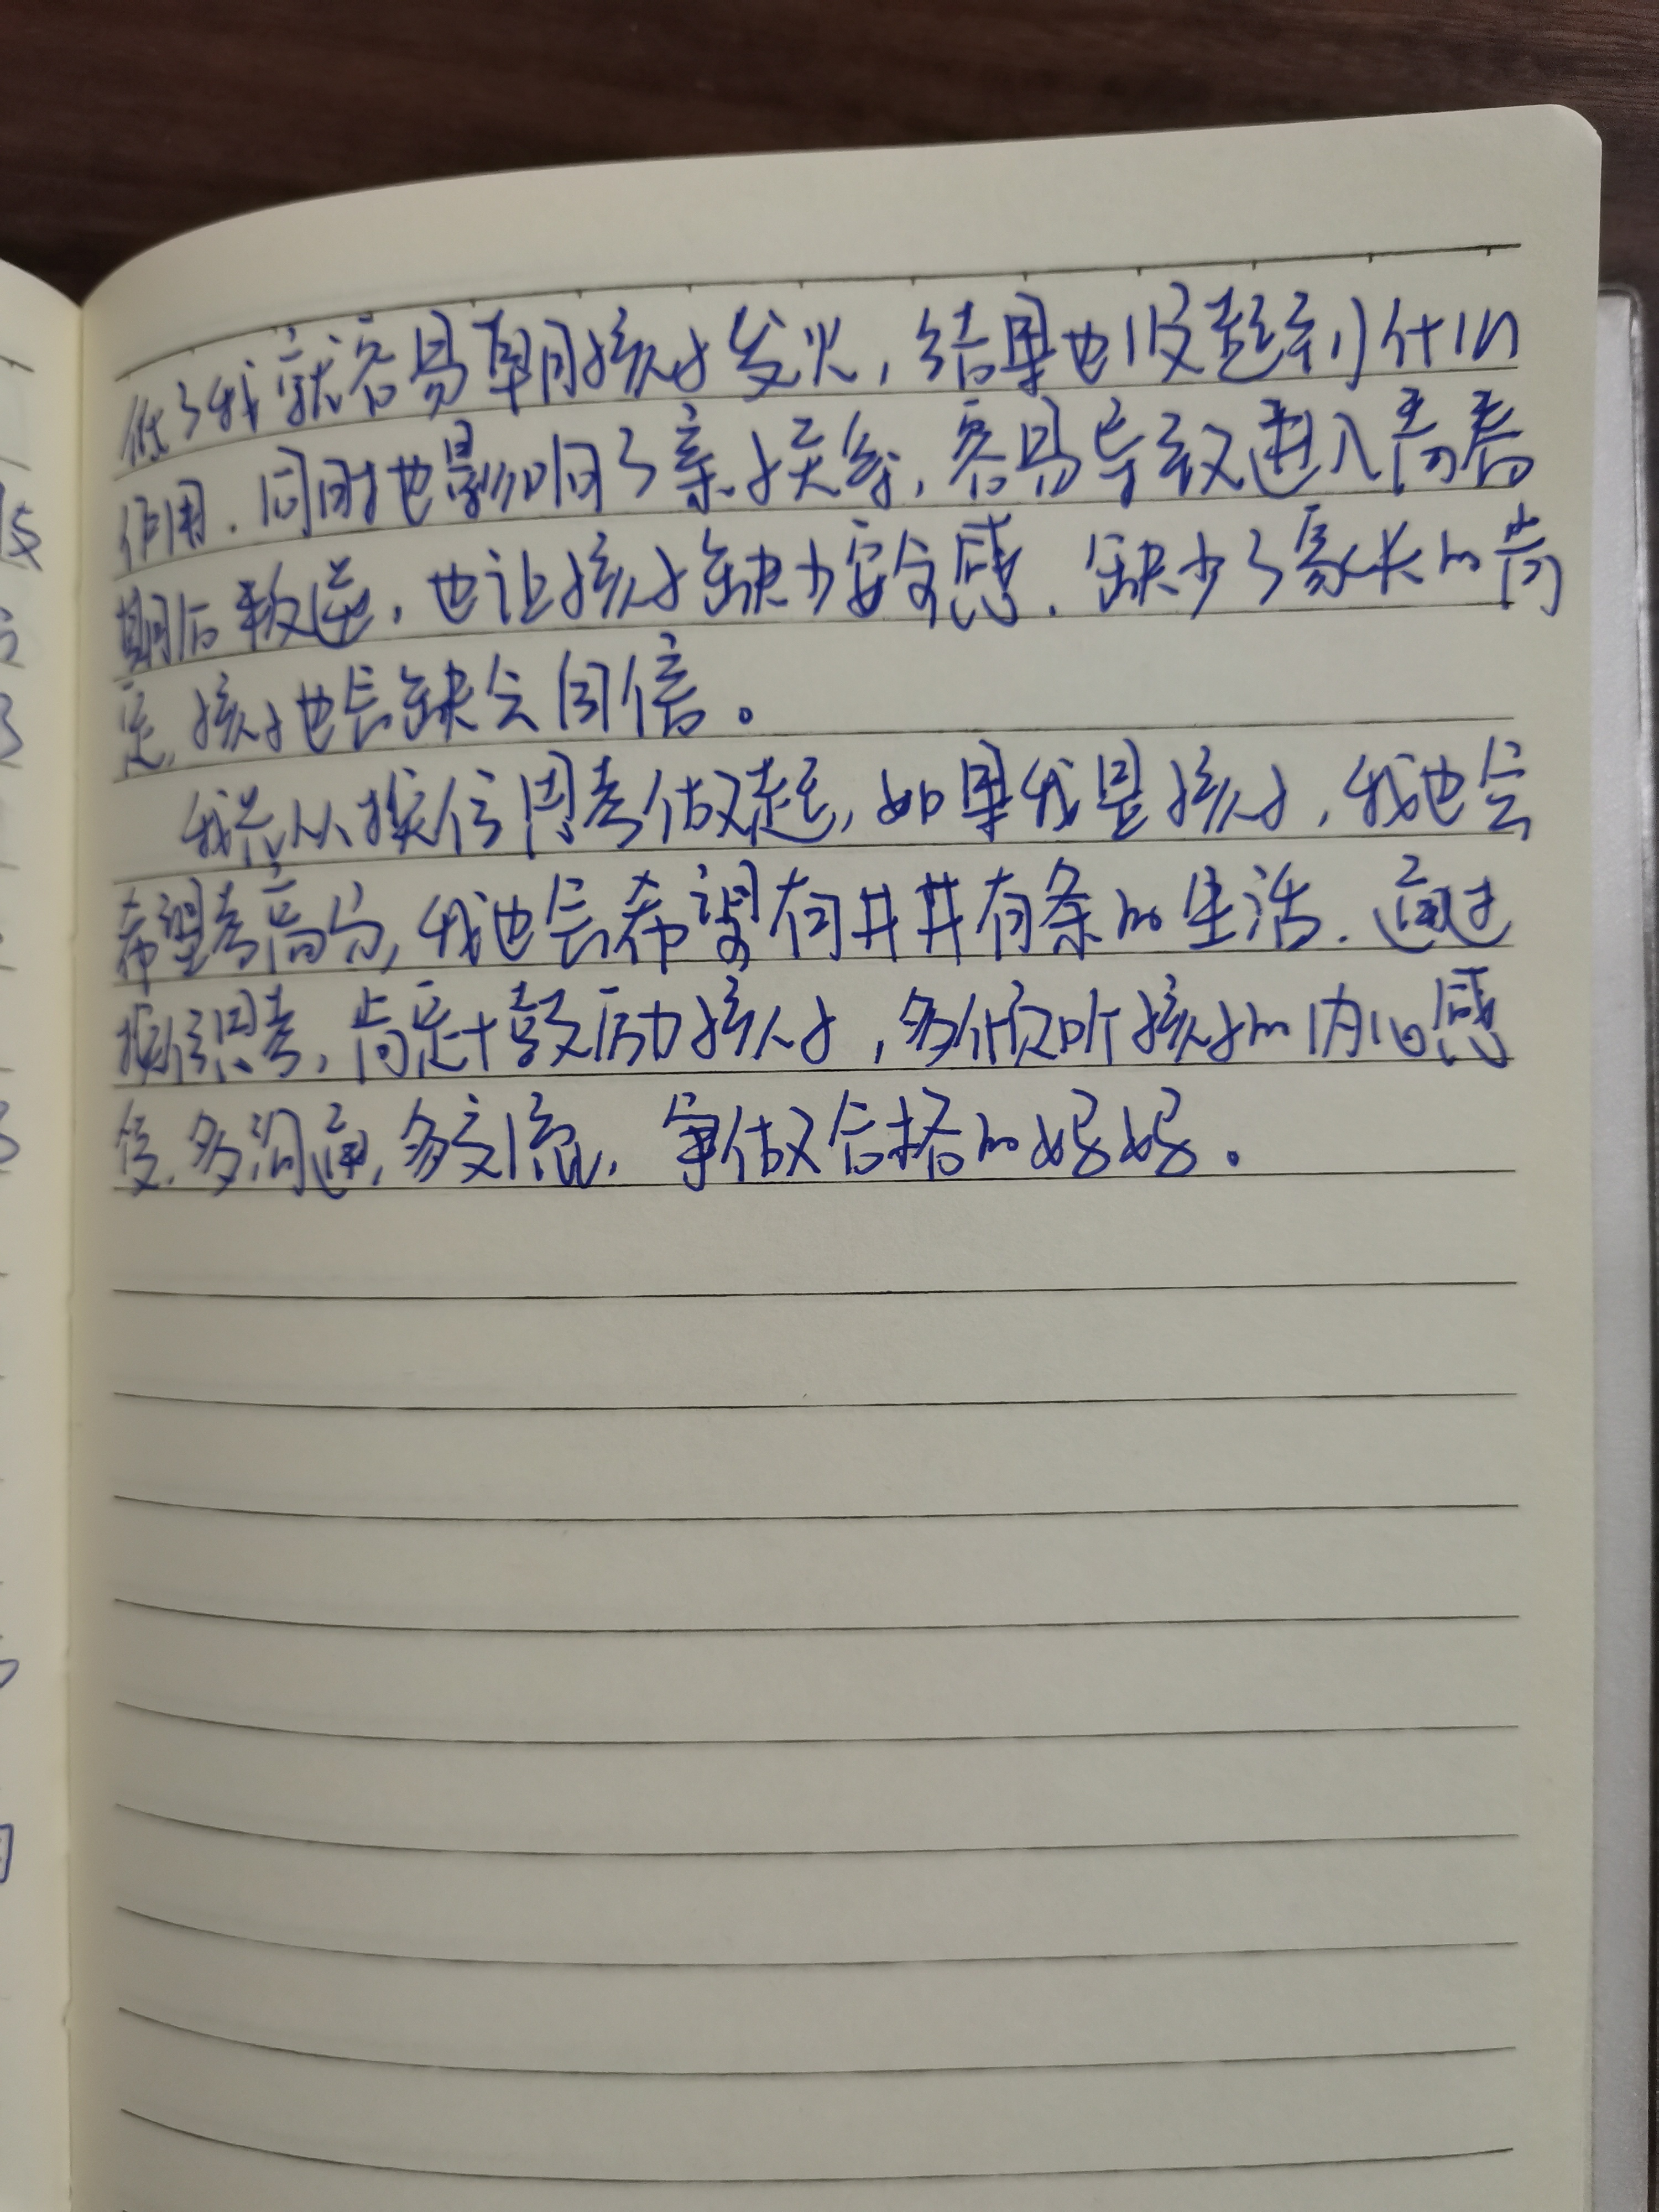 低了我就容易朝孩子发火，结果也没起到什么
作用．同时也影响了亲子关系，容易导致进入青春
期后叛逆，也让孩子缺少安全感．缺少了家长的肯
定，孩子也会缺失自信。
我先从换位思考做起，如果我是孩子，我也会
希望考高分，我也会希望有井井有条的生活．通过
换位思考，肯定+鼓励孩子，多倾听孩子的内心感
受．多沟通，多交流，争做合格的妈妈。